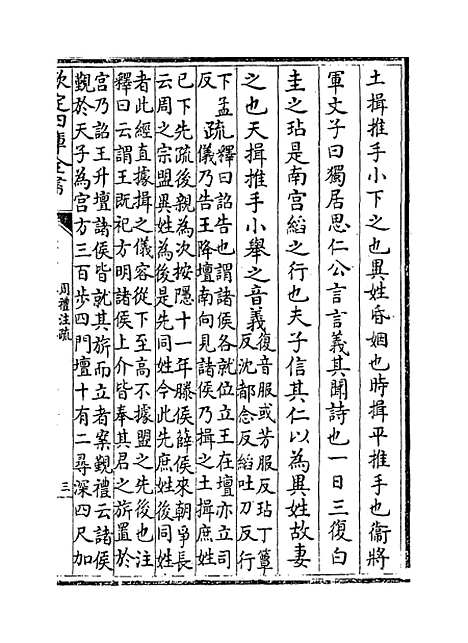 土揖推手小下之也異姓昏姻也時揖平推手也衞將
軍文子曰獨居思仁公言言義其聞詩也一日三復白
圭之玷是南宫縚之行也夫子信其仁以為異姓故妻
之也天揖推手小舉之音義復音服或芳服反玷丁簟
反沈都念反縚吐刀反行
下孟反疏釋曰詔告也謂諸侯各就位立王在壇亦立司
儀乃告王降壇南向見諸侯乃揖之土揖庶姓
已下先疏後親為次按隱十一年滕侯薛侯來朝爭長
云周之宗盟異姓為後是先同姓今此先庶姓後同姓
者此經直據揖之儀容從下至高不據盟之先後也注
釋曰云謂王既祀方明諸侯上介皆奉其君之旂置於
宫乃詔王升壇諸侯皆就其旂而立者案覲禮云諸侯
覲於天子為宫方三百歩四門壇十有二尋深四尺加
欽定四庫全書
周禮注疏
三